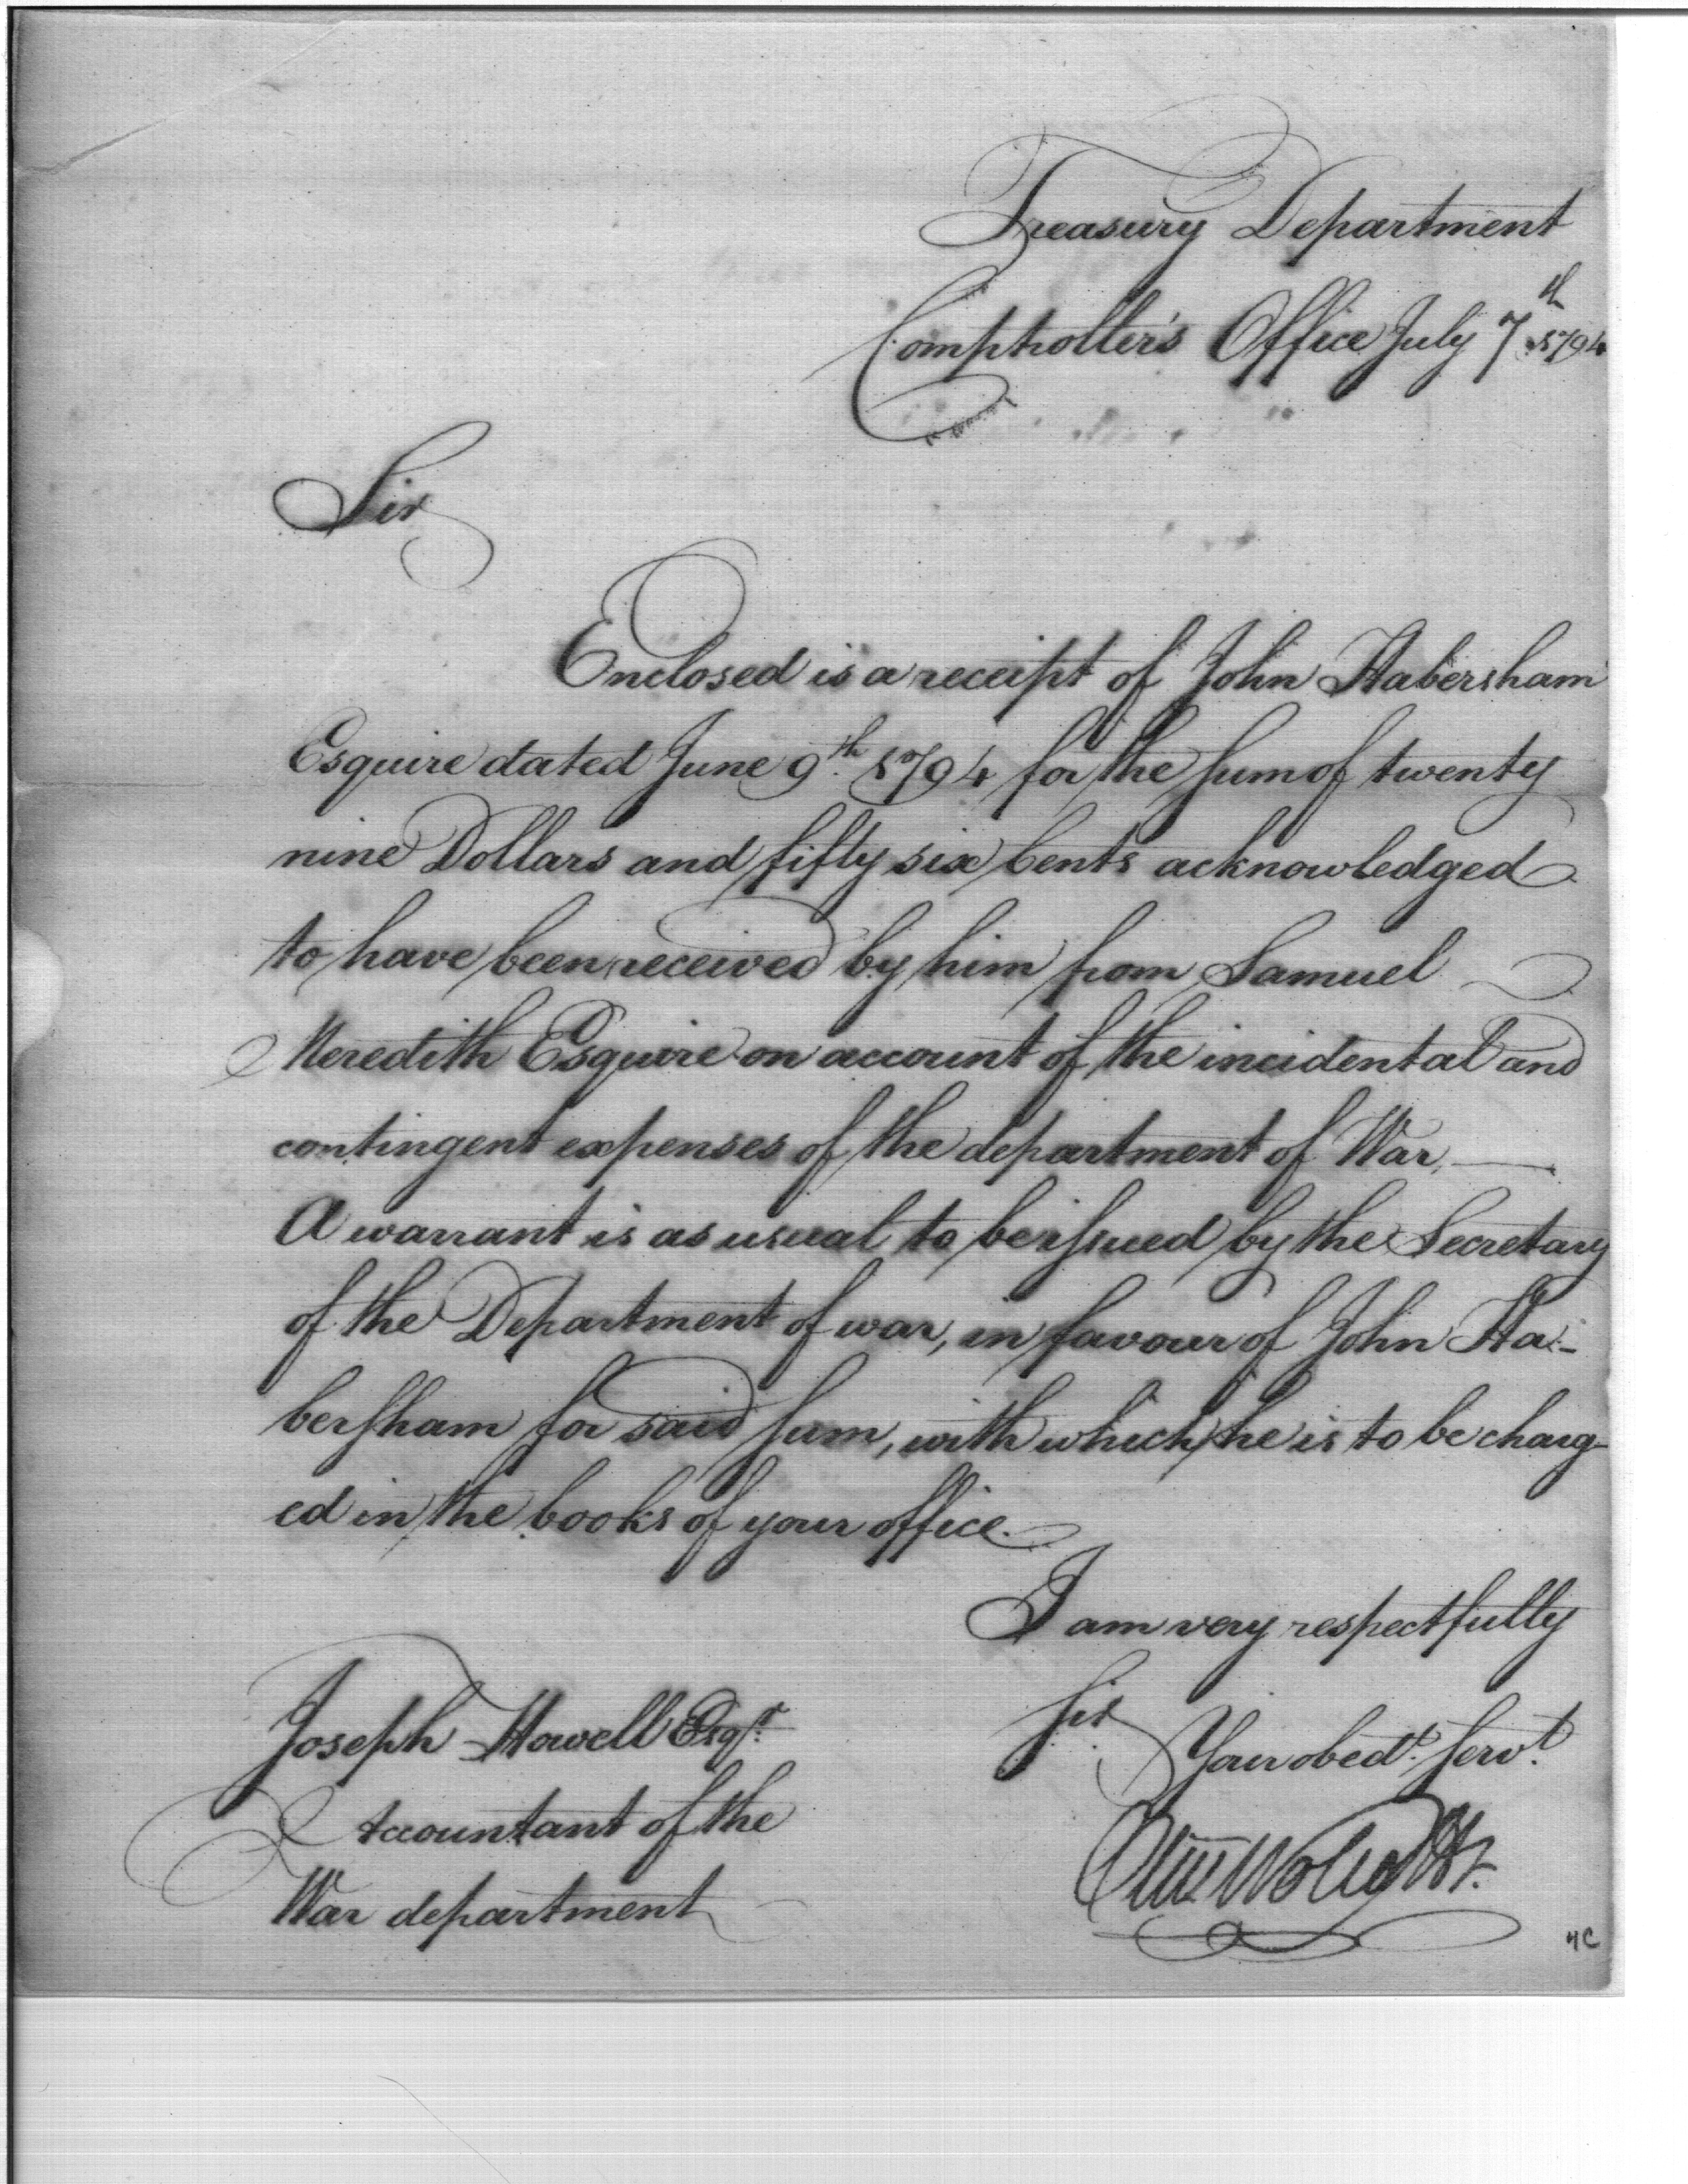 Treasury Department
Comptroller's Office July 7th 1794
Sir
Enclosed is a receipt of John Habersham
Esquire dated June 9th. 1794 for the sum of twenty
nine Dollars and fifty six Cents acknowledged
to have been received by him from Samuel
Meredith Esquire on account of the incidental and
contingent expenses of the department of War,
A warrant is as usual to be issued by the Secretary
of the Department of war, in favour of John Ha-
bersham for said sum, with which he is to be charg-
ed in the books of your office.
I am very respectfully
Sir
Your obedt. Servt.
Oliv Wolcott Jr.
Joseph Howell Esqr.
Accountant of the
War department